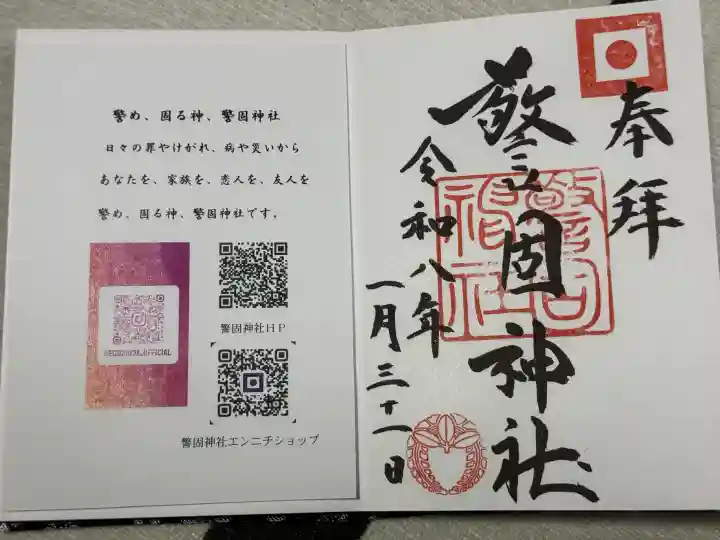 警め、固る神、警固神社
日々の罪やけがれ、病や災いから
あなたを、家族を、恋人を、友人を
警め、固る神、警固神社です。
警固神社HP
警固神社エンニチショップ
奉拝
警固神社
警固神社
令和八年
一月三十一日